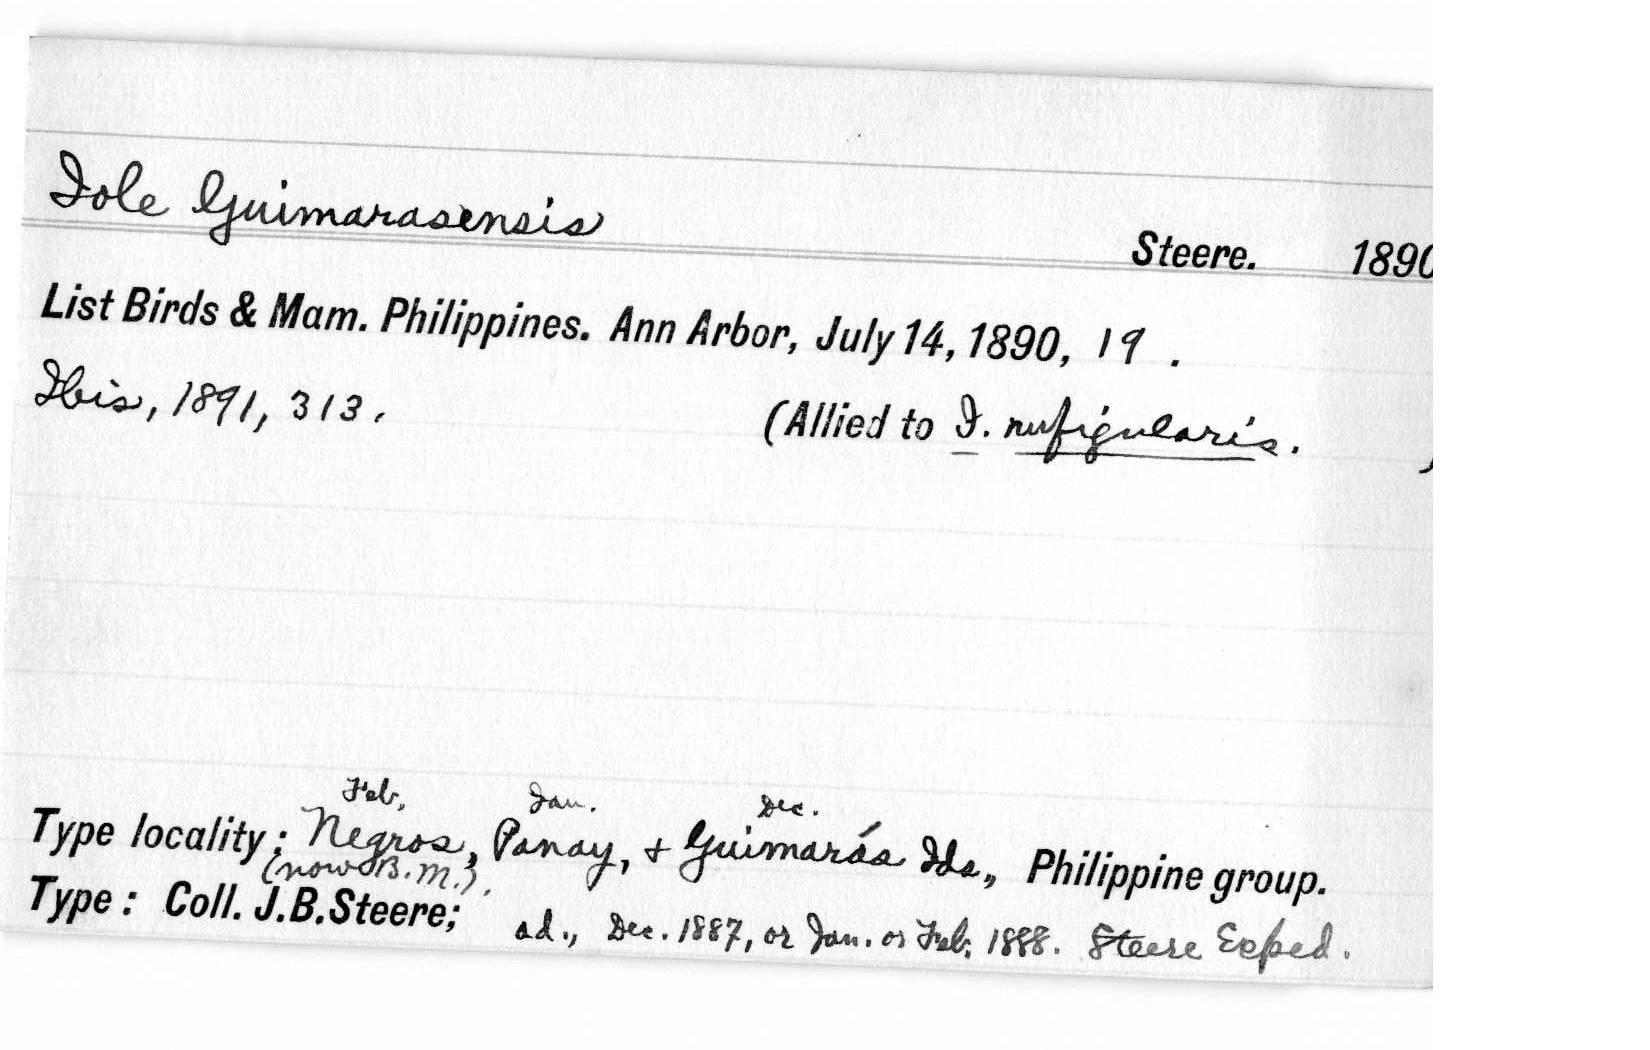 Iole Guimarasensis Steere. 1890
List Birds & Mam. Philippines. Ann Arbor, July 14, 1890, 19 .
Ibis, 1891, 313. (Allied to I. rufigularis. )
Feb. Jan. Dec.
Type locality: Negros, Panay, + Guimarás Ids., Philippine group.
(now B.M.).
Type: Coll. J.B.Steere; ad., Dec. 1887, or Jan. or Feb. 1888. Steere Exped.